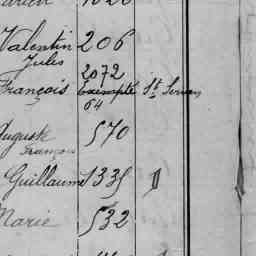 Valentin 206
Jules
2072
François Exempté St Servan
64
Auguste 570
François
Guillaume 1335 D
Marie 532